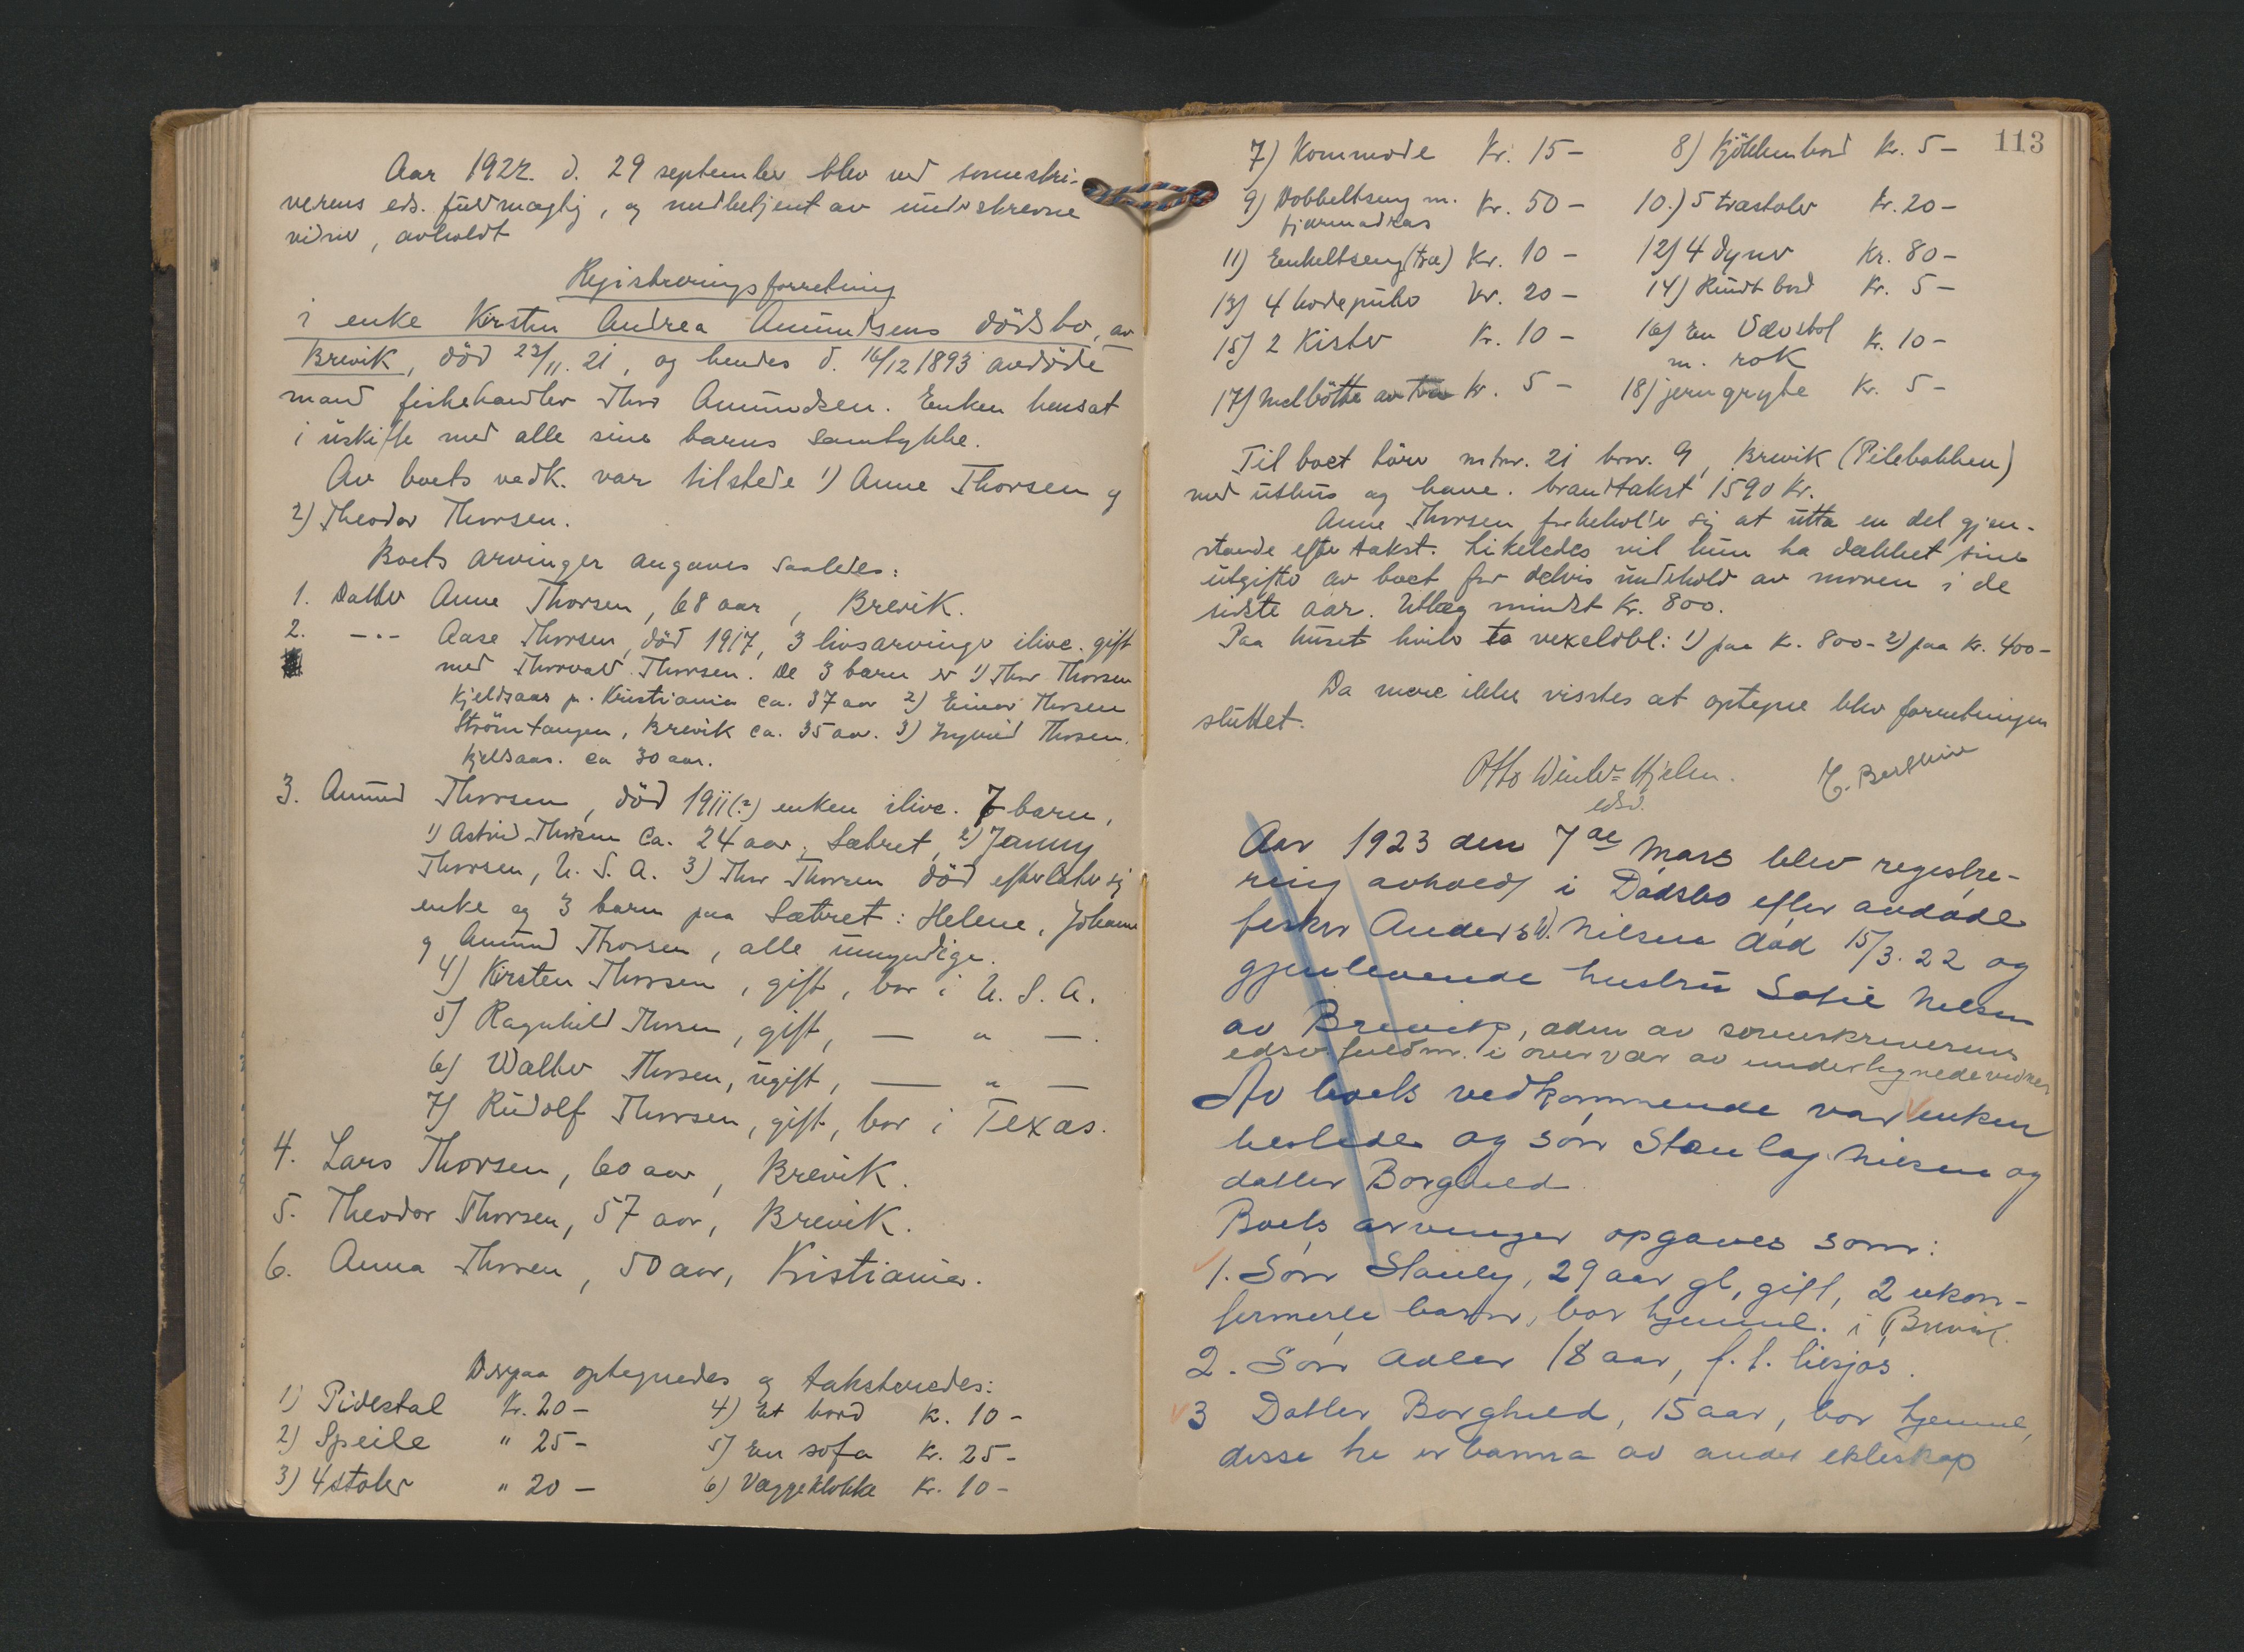 Aar 1922. d. 29 september blev ved sorenskri-
verens eds. fuldmægtig, og medbetjent av underskrevne
vidner, avholdt
Registreringsforretning
i enke Kirsten Andrea Amundsens dödsbo, av
Brevik, död 23/11. 21, og hendes d. 16/12 1893 avdöde
mand fiskehandler Thor Amundsen. Enken hensat
i uskifte med alle sine barns samtykke.
Av boets vedk. var tilstede 1) Anne Thorsen og
2) Theodor Thorsen.
Boets arvinger angaves saaledes:
1. Datter Anne Thorsen, 68 aar, Brevik.
2. -"- Aase Thorsen, död 1917, 3 livsarvinger ilive. gift
med Thorvald Thorsen. De 3 barn er 1) Thor Thorsen
Kjelsaas p. Kristiania ca. 37 aar 2) Einar Thorsen
Strömtangen, Brevik ca. 35 aar. 3) Ingvald Thorsen.
Kjelsaas. ca 30 aar.
3. Amund Thorsen, död 1911(?) enken ilive. 7 barn,
1) Astrid Thorsen ca. 24 aar, Sætret, 2) Jenny
Thorsen, U. S. A. 3) Thor Thorsen död efterlater sig
enke og 3 barn paa Sætret: Helene, Johanne
og Amund Thorsen, alle umyndige.
4) Kirsten Thorsen, gift, bor i U. S. A.
5) Ragnhild Thorsen, gift, — " —.
6) Walter Thorsen, ugift, — " —
7) Rudolf Thorsen, gift, bor i Texas.
4. Lars Thorsen, 60 aar, Brevik.
5. Theodor Thorsen, 57 aar, Brevik.
6. Anna Thorsen, 50 aar, Kristiania.
Derpaa optegnedes og taksteredes:
1) Pidestal Kr. 20- 4) Et bord Kr. 10-
2) Speile " 25- 5) En sofa Kr. 25-
3) 4 stoler " 20- 6) Væggeklokke Kr. 10-
113
7) Kommode Kr. 15- 8) Kjökkenbord Kr. 5-
9) Dobbeltseng m. Kr. 50- 10.) 5 træstoler Kr. 20-
fjærmadras
11) Enkeltseng (træ) Kr. 10- 12) 4 dyner Kr. 80-
13) 4 hodeputer Kr. 20- 14) Rundt bord Kr. 5-
15) 2 Kister Kr. 10- 16) En Vævstol Kr. 10-
m. rok
17) Melbötte av træ Kr. 5- 18) jerngryte Kr. 5-
Til boet hörer matr. 21 brnr. 9, Brevik (Pilebakken)
med uthus og have. brandtakst 1590 Kr.
Anne Thorsen forbeholder sig at utta en del gjen-
stande efter takst. Likeledes vil hun ha dækket sine
utgifter av boet for delvis underhold av moren i de
sidste aar. Utlæg mindst Kr. 800.
Paa huset hviler to vexelobl: 1) paa Kr. 800- 2) paa Kr. 400-
Da mere ikke visstes at optegne blev forretningen
sluttet.
Otto Winter-Hjelm.
edsv.
Aar 1923 den 7de Mars blev registre-
ring avholdt i Dødsbo efter avdøde
fisker Anders W. Nilsen død 15/3. 22 og
gjenlevende hustru Sofie Nilsen
av Brevik, aden av sorenskriverens
edsv. fuldm. i overvær av undertegnede vidner
Av boets vedkommende var enken
tilstede og søn Stanley Nilsen og
datter Borghild
Boets arvinger opgaves som:
1. Søn Stanley, 29 aar gl, gift, 2 ukon-
firmerte barn, bor hjemme. i Brevik.
2. Søn Adler 18 aar, f. t. tilsjøs.
3 Datter Borghild, 15 aar, bor hjemme,
disse tre er barna av andet ekteskap